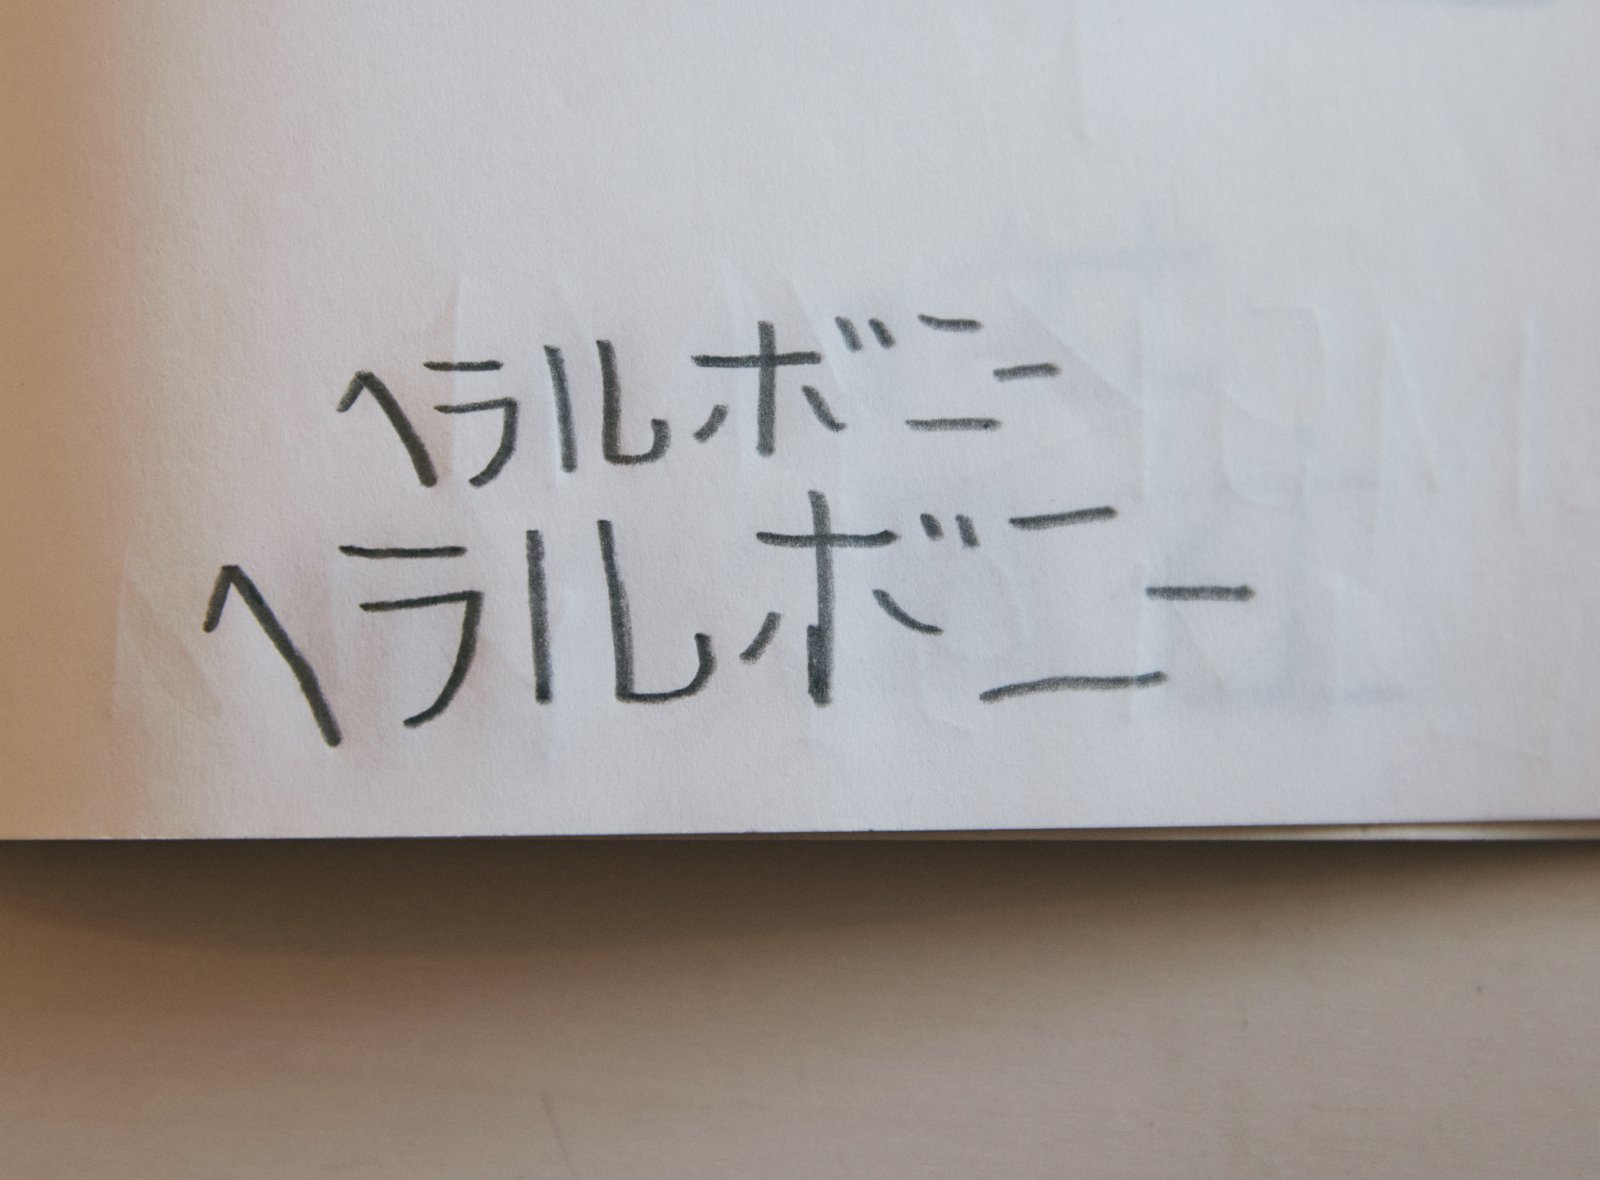 ヘラルボニー
ヘラルボニー